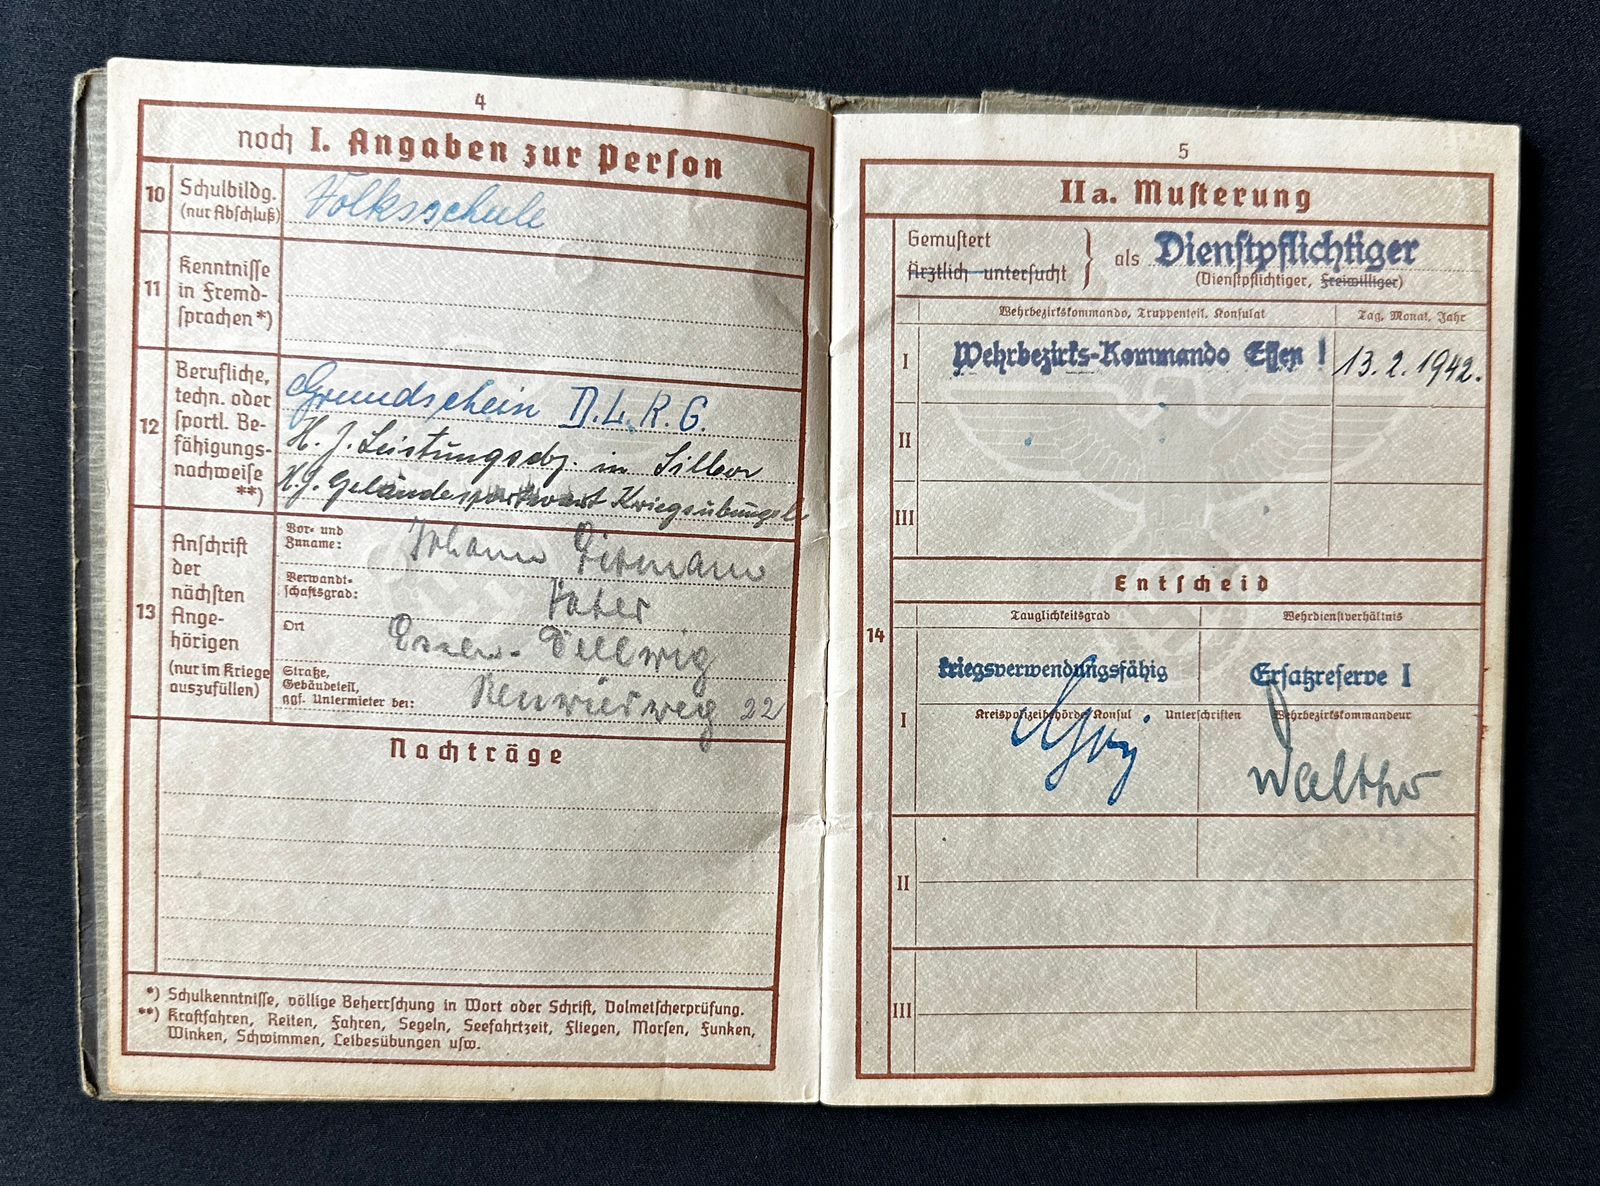 4
noch I. Angaben zur Person
10
Schulbildg.
(nur Abschluß)
Volksschule
11
Kenntnisse
in Fremd-
sprachen*)
12
Berufliche,
techn. oder
sportl. Be-
fähigungs-
nachweise
**)
Grundschein D.L.R.G.
H.J. Leistungsabz. in Silber
H.J. Geländesportwart Kriegsübungsl
13
Anschrift
der
nächsten
Ange-
hörigen
(nur im Kriege
auszufüllen)
Vor- und
Zuname:
Johann
Verwandt-
schaftsgrad:
Vater
Ort
Essen-Dellwig
Straße,
Gebäudeteil,
ggf. Untermieter bei:
22
Nachträge
*) Schulkenntnisse, völlige Beherrschung in Wort oder Schrift, Dolmetscherprüfung.
**) Kraftfahren, Reiten, Fahren, Segeln, Seefahrtzeit, Fliegen, Morsen, Funken,
Winken, Schwimmen, Leibesübungen usw.
5
IIa. Musterung
Gemustert
Ärztlich untersucht
als Dienstpflichtiger
(Dienstpflichtiger, Freiwilliger)
Wehrbezirkskommando, Truppenteil, Konsulat
Tag, Monat, Jahr
I
Wehrbezirks-Kommando Essen I
13.2.1942.
II
III
Entscheid
14
Tauglichkeitsgrad
Wehrdienstverhältnis
kriegsverwendungsfähig
Ersatzreserve I
I
Kreispolizeibehörde Konsul Unterschriften Wehrbezirkskommandeur
II
III